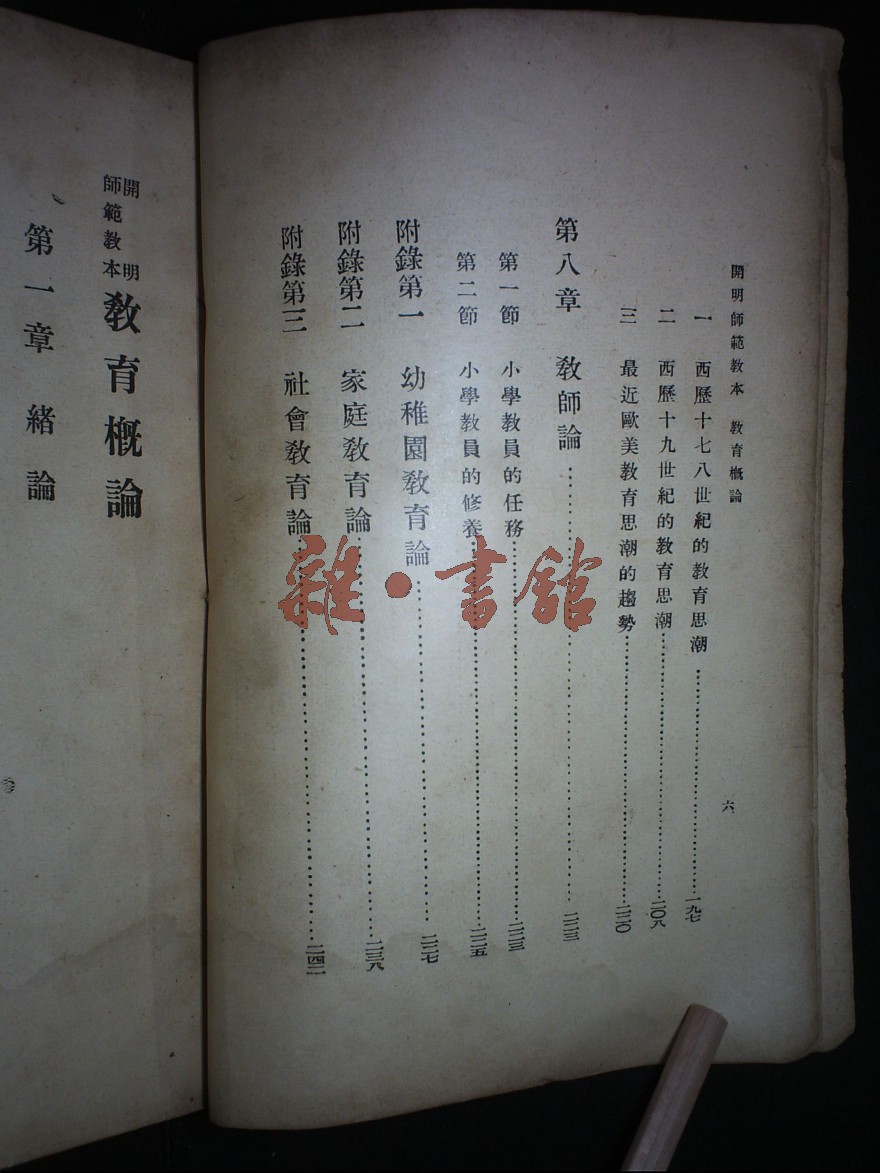 開明師範教本 教育概論
一 西歷十七八世紀的教育思潮……一九七
二 西歷十九世紀的教育思潮……二〇八
三 最近歐美教育思潮的趨勢……二二〇
第八章 教師論……二二三
第一節 小學教員的任務……二二三
第二節 小學教員的修養……二二五
附錄第一 幼稚園教育論……二二七
附錄第二 家庭教育論……二三八
附錄第三 社會教育論……二四二
六
雜·書館
開明師範教本 教育概論
第一章 緒論